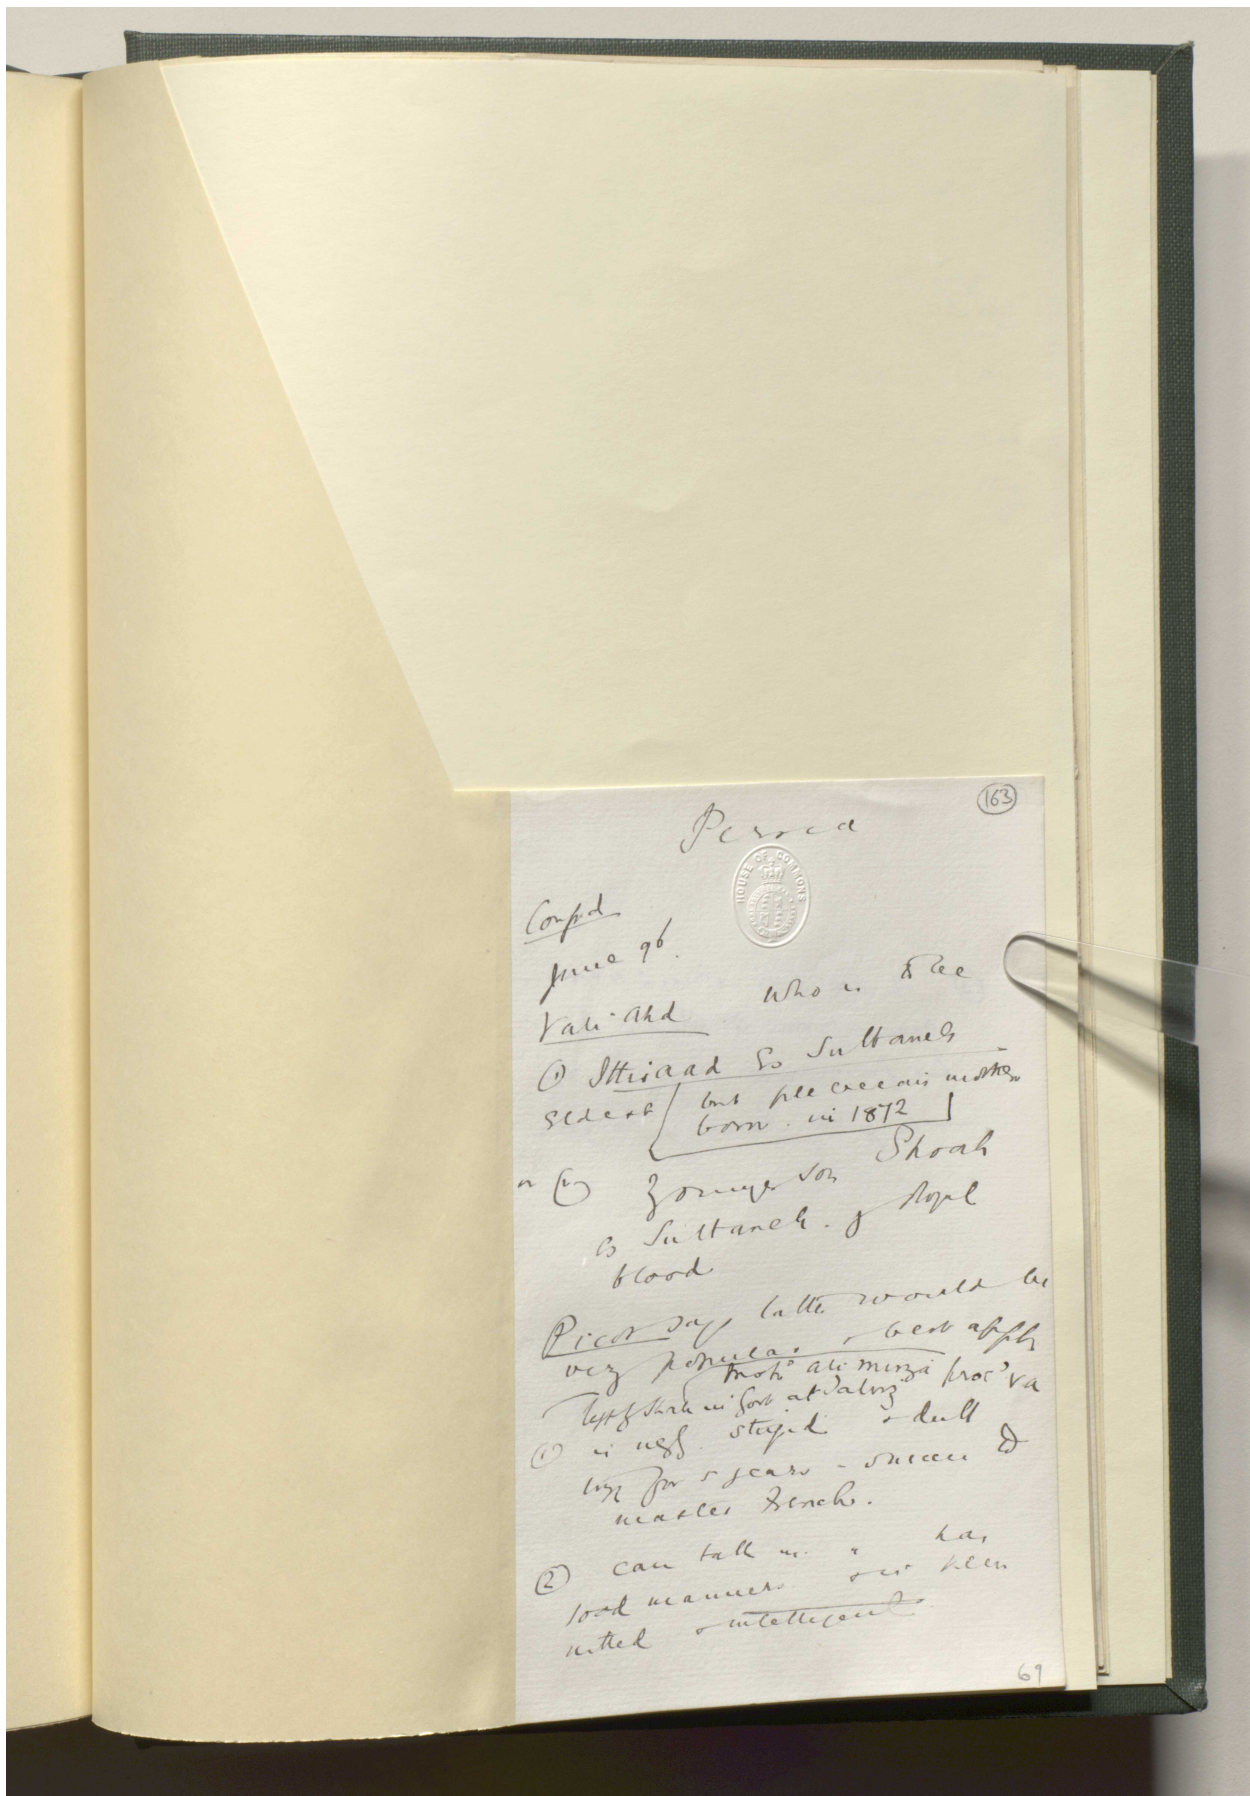 163
Persia
HOUSE OF COMMONS
Confid
June 96.
Vali-Ahd who is to be
① Ittizad es Sultaneh
Eldest but plebeian mother
born in 1872
or (2) younger son Shoah
es Sultaneh. of Royal
blood
Picot says latter would be
very popular & best appt
Moh^d Ali Mirza
of Shah in Govt at
① is ugly stupid & dull
for 5 years -
master French.
② can talk it " has
good manners & is keen
witted & intelligent.
69